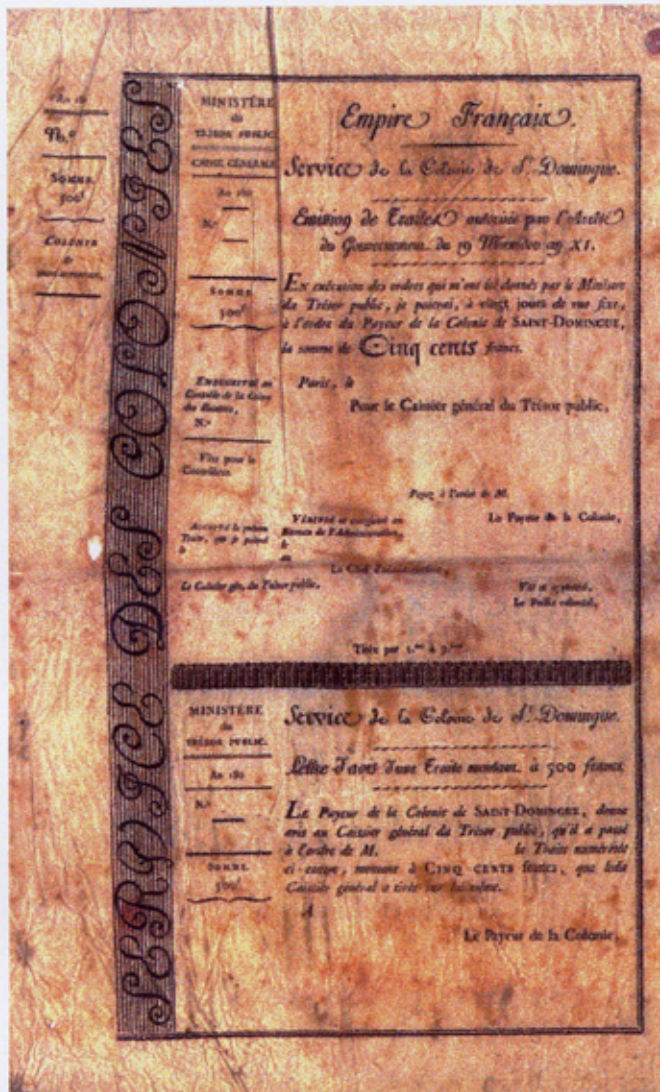 An 181
N.º
SOMME
500f
COLONIE
de
SAINT-DOMINGUE.
SERVICE DES COLONIES
MINISTÈRE
du
TRÉSOR PUBLIC.
CAISSE GÉNÉRALE
An 180
N.º
SOMME
500f
ENREGISTRÉ au
Contrôle de la Caisse
des Recettes,
N.º
Vu pour le
Contrôleur
Empire Français.
Service de la Colonie de St. Domingue.
Emission de Traites autorisée par l'Arrêté
du Gouvernement du 19 an XI.
EN exécution des ordres qui m'ont été donnés par le Ministre
du Trésor public, je paierai, à vingt jours de vue fixe,
à l'ordre du Payeur de la Colonie de SAINT-DOMINGUE,
la somme de Cinq cents francs.
Paris, le
Pour le Caissier général du Trésor public,
Payez à l'ordre de M.
Le Payeur de la Colonie,
ACCEPTÉ la présente
Traite, que je paierai
le
VÉRIFIÉ et enregistré au
Bureau de l'Administration,
le
an
Le Chef d'administration,
Le Caissier gén. du Trésor public,
Vu et approuvé,
Le Préfet colonial,
Tirée par 1.ère à 3.ème
MINISTÈRE
du
TRÉSOR PUBLIC.
An 180
N.º
SOMME
500f
Service de la Colonie de St. Domingue.
Lettre d'avis d'une Traite montant à 500 francs
LE Payeur de la Colonie de SAINT-DOMINGUE, donne
avis au Caissier général du Trésor public, qu'il a passé
à l'ordre de M. la Traite numérotée
ci-contre, montant à CINQ CENTS francs, que ledit
Caissier général a tirée sur lui-même.
A
Le Payeur de la Colonie,